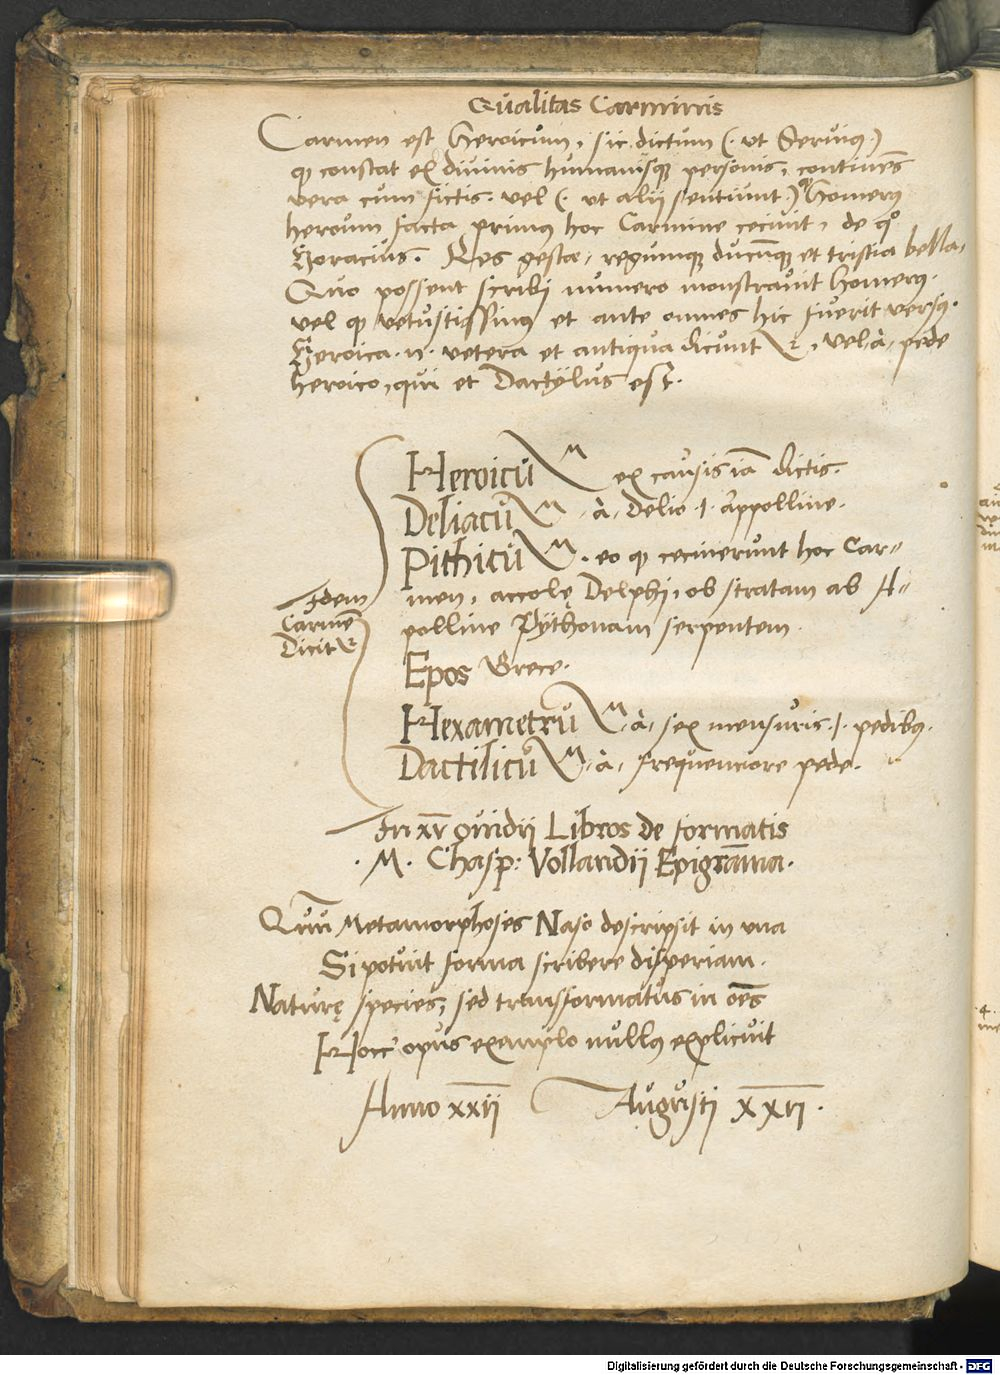 Qualitas Carminis
Carmen est Heroicum, sic dictum (· ut Servius ·)
qp constat ex divinis humanisque personis, continēs
vera cum fictis. vel (· ut alij sentiunt ·) Homerus
heroum facta primus hoc Carmine cecinit, de qo
Horacius. Res gestæ, regumque ducūque et tristia bella,
Quo possent scribi numero monstravit Homerus.
vel qp vetustissimus et ante omnes hic fuerit versus.
Heroica .n. vetera et antiqua dicunt, vel à pede
heroico, qui et Dactÿlus est.
Heroicū ex causis iā dictis.
Deliacū à Delio .i. appolline.
Pithicū. eo qp cecinerunt hoc Car=
men, accolę Delphi, ob stratam ab A=
polline Pÿthonam serpentem.
Idem
Carmē
Dicitr
Epos Grece.
Hexametrū à sex mensuris .i. pedibus.
Dactilicū à frequenciore pede.
In xv ovidij Libros de formatis
.M. Chasp: Vollandij Epigrāma.
Qum Metamorphoses Naso descripsit in una
Si potuit forma scribere disperiam.
Naturę species, sed transformatus in oēs
Hocc opus exemplo nullus explicuit
Anno xxij Augusti xxij.
Digitalisierung gefördert durch die Deutsche Forschungsgemeinschaft - DFG